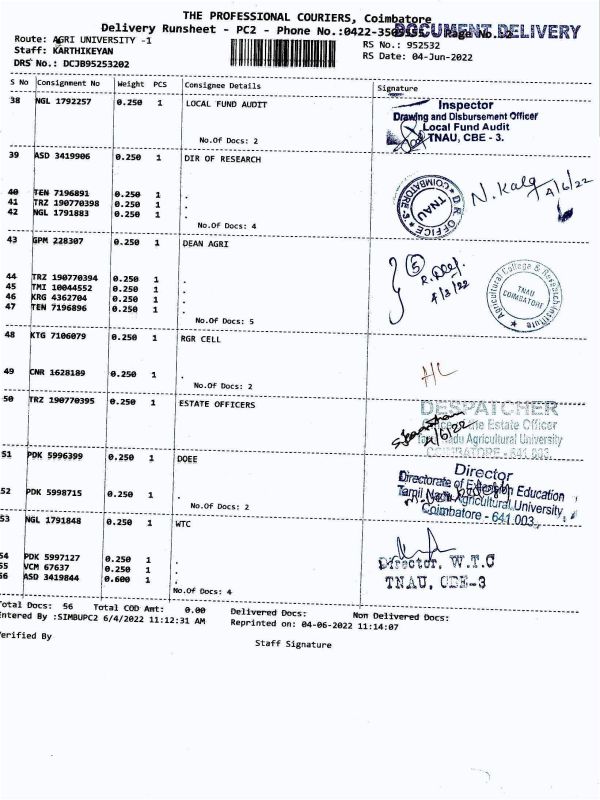 THE PROFESSIONAL COURIERS, Coimbatore
Delivery Runsheet - PC2 - Phone No.:0422-350 Page No. 2
DOCUMENT DELIVERY
Route: AGRI UNIVERSITY -1
RS No.: 952532
Staff: KARTHIKEYAN
RS Date: 04-Jun-2022
DRS No.: DCJB95253202
S No Consignment No Weight PCS Consignee Details Signature
38 NGL 1792257 0.250 1 LOCAL FUND AUDIT
Inspector
Drawing and Disbursement Officer
Local Fund Audit
TNAU, CBE - 3.
No.Of Docs: 2
39 ASD 3419906 0.250 1 DIR OF RESEARCH
40 TEN 7196891 0.250 1 .
41 TRZ 190770398 0.250 1 .
42 NGL 1791883 0.250 1 .
No.Of Docs: 4
DR OFFICE
TNAU
COIMBATORE-3
N. Kala
4/6/22
43 GPM 228307 0.250 1 DEAN AGRI
44 TRZ 190770394 0.250 1 .
45 TMI 10044552 0.250 1 .
46 KRG 4362704 0.250 1 .
47 TEN 7196896 0.250 1 .
No.Of Docs: 5
5
Agricultural College & Research Institute
TNAU
COIMBATORE
48 KTG 7106079 0.250 1 RGR CELL
49 CNR 1628189 0.250 1 .
No.Of Docs: 2
50 TRZ 190770395 0.250 1 ESTATE OFFICERS
DESPATCHER
Office of the Estate Officer
Tamil Nadu Agricultural University
COIMBATORE - 641 003.
51 PDK 5996399 0.250 1 DOEE
52 PDK 5998715 0.250 1 .
No.Of Docs: 2
Director
Directorate of Extension Education
Tamil Nadu Agricultural University,
Coimbatore - 641 003.
53 NGL 1791848 0.250 1 WTC
54 PDK 5997127 0.250 1 .
55 VCM 67637 0.250 1 .
56 ASD 3419844 0.600 1 .
No.Of Docs: 4
Director, W.T.C
TNAU, CBE-3
Total Docs: 56 Total COD Amt: 0.00 Delivered Docs: Non Delivered Docs:
Entered By :SIMBUPC2 6/4/2022 11:12:31 AM Reprinted on: 04-06-2022 11:14:07
Verified By
Staff Signature